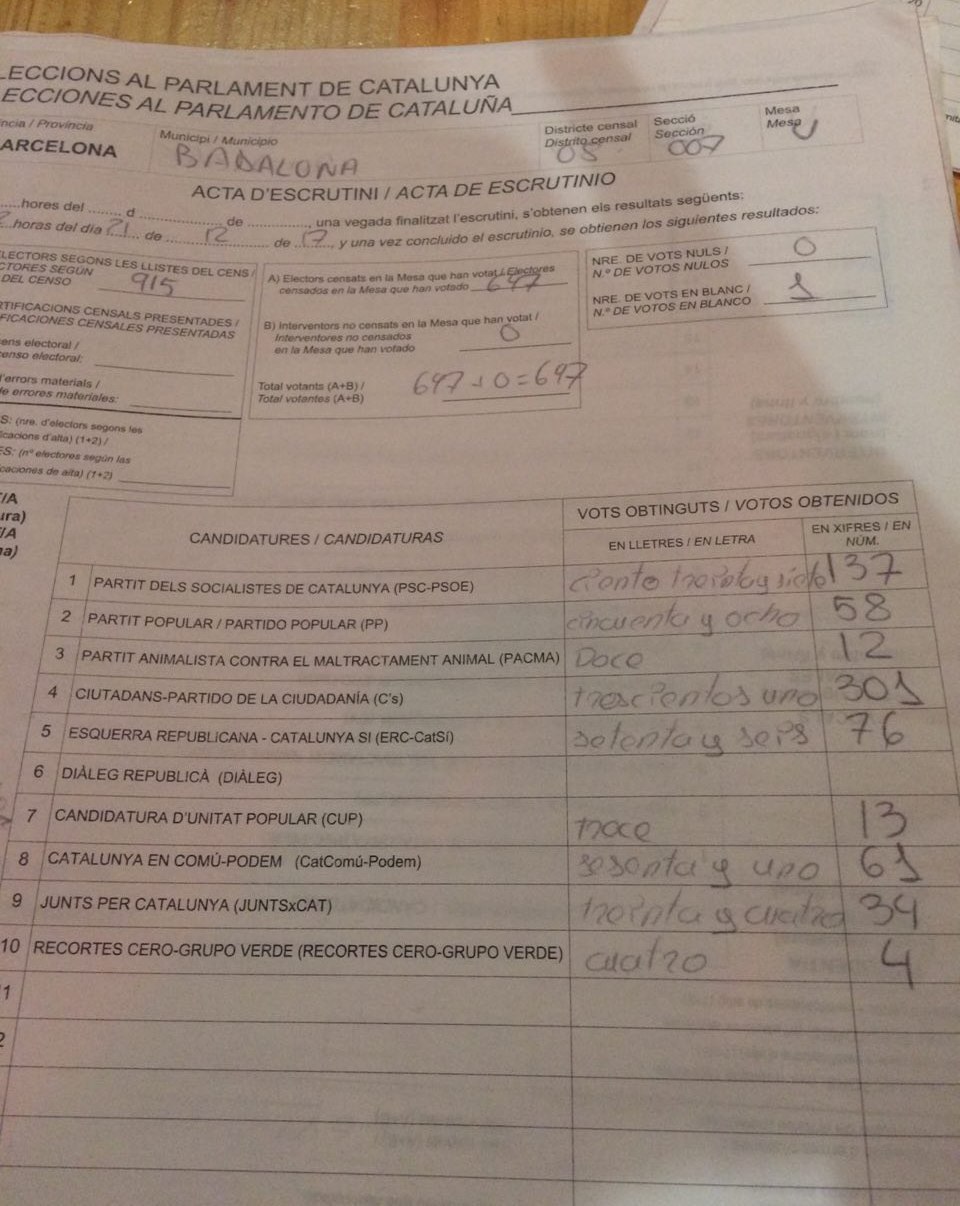 LECCIONS AL PARLAMENT DE CATALUNYA
ECCIONES AL PARLAMENTO DE CATALUÑA
ncia / Provincia
ARCELONA
Municipi / Municipio
BADALONA
Districte censal
Distrito censal
05
Secció
Sección
007
Mesa
Mesa
U
ACTA D'ESCRUTINI / ACTA DE ESCRUTINIO
hores del ........ d .................... de ..............., una vegada finalitzat l'escrutini, s'obtenen els resultats següents:
horas del día 21 de 12 de 17, y una vez concluido el escrutinio, se obtienen los siguientes resultados:
LECTORS SEGONS LES LLISTES DEL CENS /
CTORES SEGÚN
DEL CENSO 915
RTIFICACIONS CENSALS PRESENTADES /
FICACIONES CENSALES PRESENTADAS
ens electoral /
enso electoral:
'errors materials /
de errores materiales:
S: (nre. d'electors segons les
ficacions d'alta) (1+2) /
ES: (nº electores según las
caciones de alta) (1+2)
A) Electors censats en la Mesa que han votat / Electores
censados en la Mesa que han votado 697
B) Interventors no censats en la Mesa que han votat /
Interventores no censados
en la Mesa que han votado 0
Total votants (A+B) /
Total votantes (A+B) 697 + 0 = 697
NRE. DE VOTS NULS /
N.º DE VOTOS NULOS 0
NRE. DE VOTS EN BLANC /
N.º DE VOTOS EN BLANCO 1
/A
ura)
/A
na)
CANDIDATURES / CANDIDATURAS
VOTS OBTINGUTS / VOTOS OBTENIDOS
EN LLETRES / EN LETRA
EN XIFRES / EN
NÚM.
1 PARTIT DELS SOCIALISTES DE CATALUNYA (PSC-PSOE) ciento treinta y siete 137
2 PARTIT POPULAR / PARTIDO POPULAR (PP) cincuenta y ocho 58
3 PARTIT ANIMALISTA CONTRA EL MALTRACTAMENT ANIMAL (PACMA) Doce 12
4 CIUTADANS-PARTIDO DE LA CIUDADANÍA (C's) trescientos uno 301
5 ESQUERRA REPUBLICANA - CATALUNYA SI (ERC-CatSí) setenta y seis 76
6 DIÀLEG REPUBLICÀ (DIÀLEG)
7 CANDIDATURA D'UNITAT POPULAR (CUP) trece 13
8 CATALUNYA EN COMÚ-PODEM (CatComú-Podem) sesenta y uno 61
9 JUNTS PER CATALUNYA (JUNTSxCAT) treinta y cuatro 34
10 RECORTES CERO-GRUPO VERDE (RECORTES CERO-GRUPO VERDE) cuatro 4
1
2